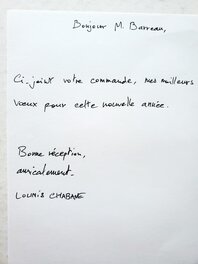 Bonjour M. Barreau,
Ci-joint votre commande, mes meilleurs
vœux pour cette nouvelle année.
Bonne réception,
amicalement.
LOUNIS CHABANE